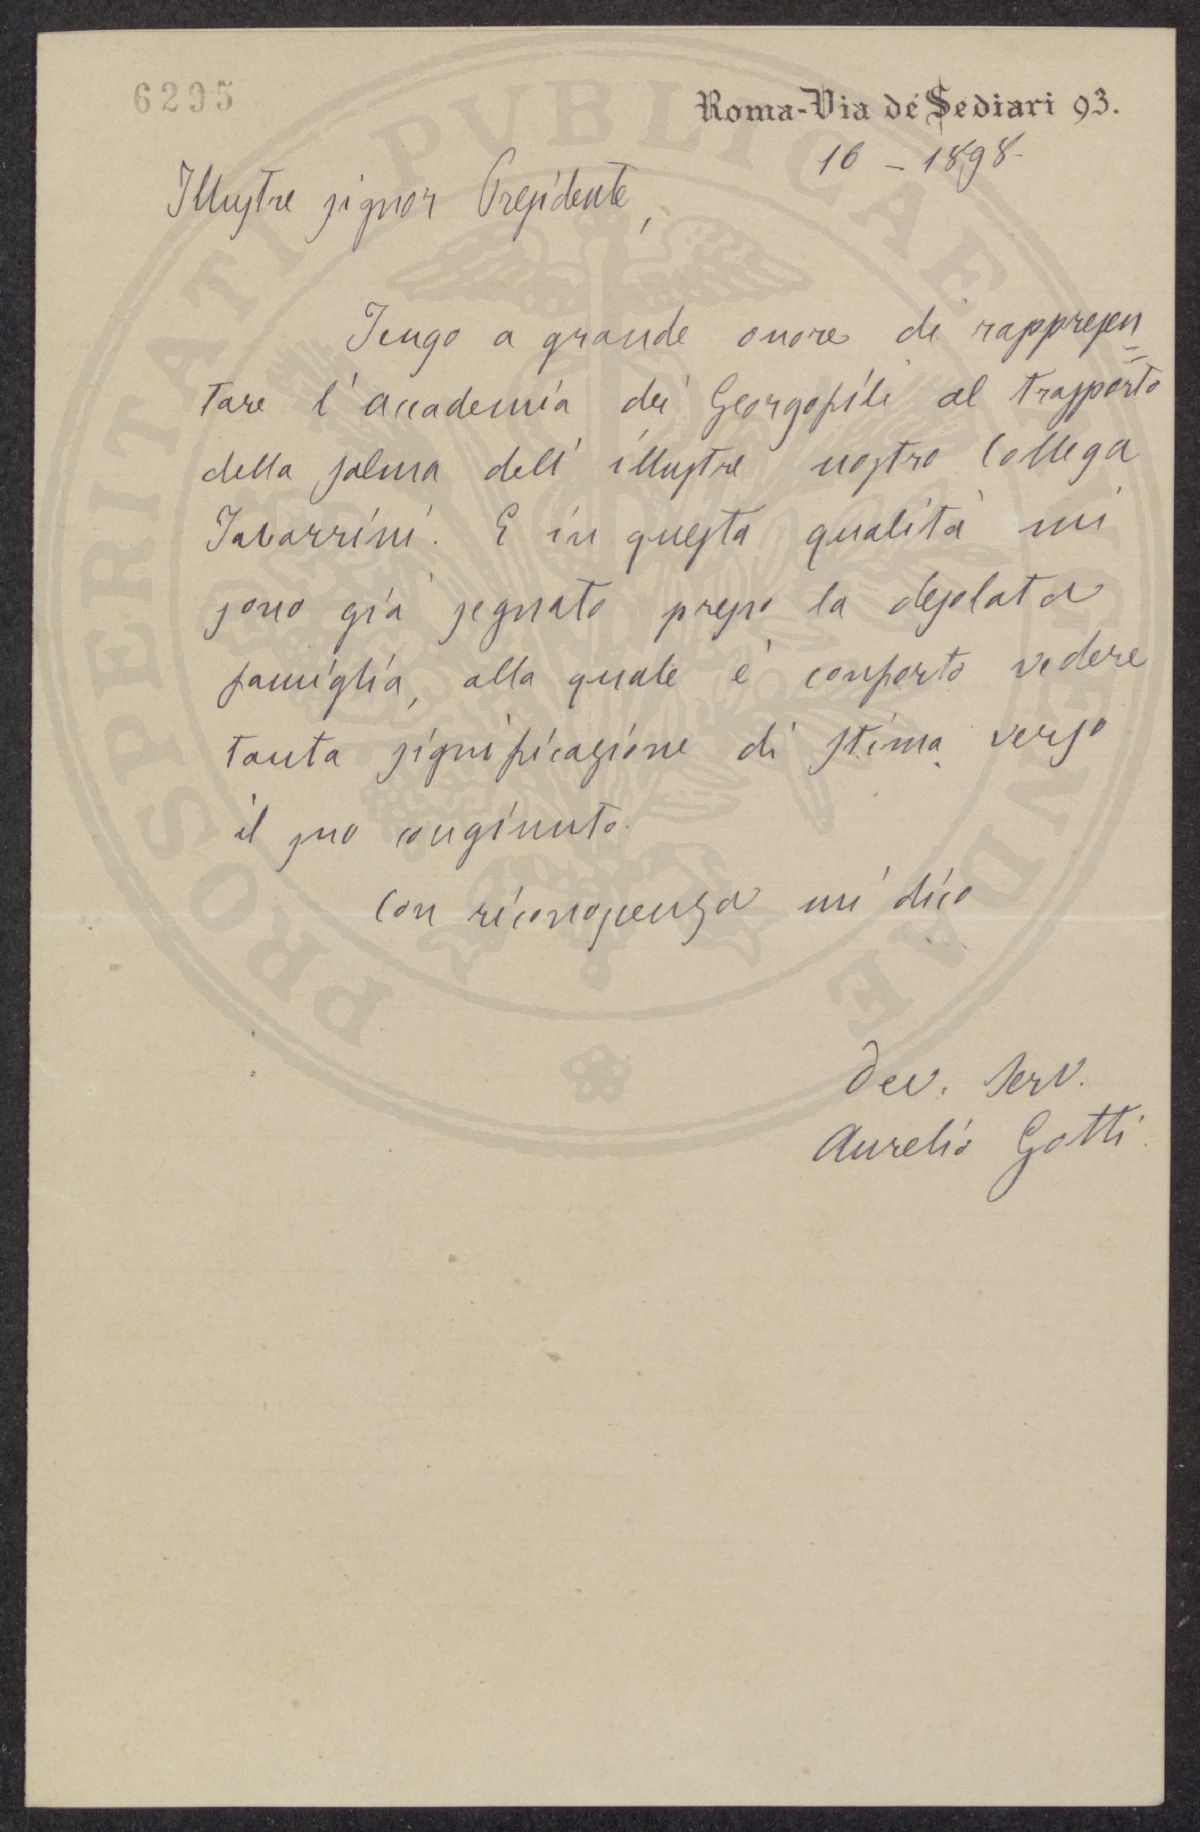 6295
Roma-Via dé Sediari 93.
16 - 1898.
Illustre signor Presidente,
Tengo a grande onore di rappresen=
tare l'Accademia dei Georgofili al trasporto
della salma dell'illustre nostro Collega
Tabarrini. E in questa qualità mi
sono già segnato presso la desolata
famiglia, alla quale è conforto vedere
tanta significazione di stima verso
il suo congiunto.
Con riconoscenza mi dico
Dev. Serv.
Aurelio Gotti.
PROSPERITATI PUBLICAE AUGENDAE